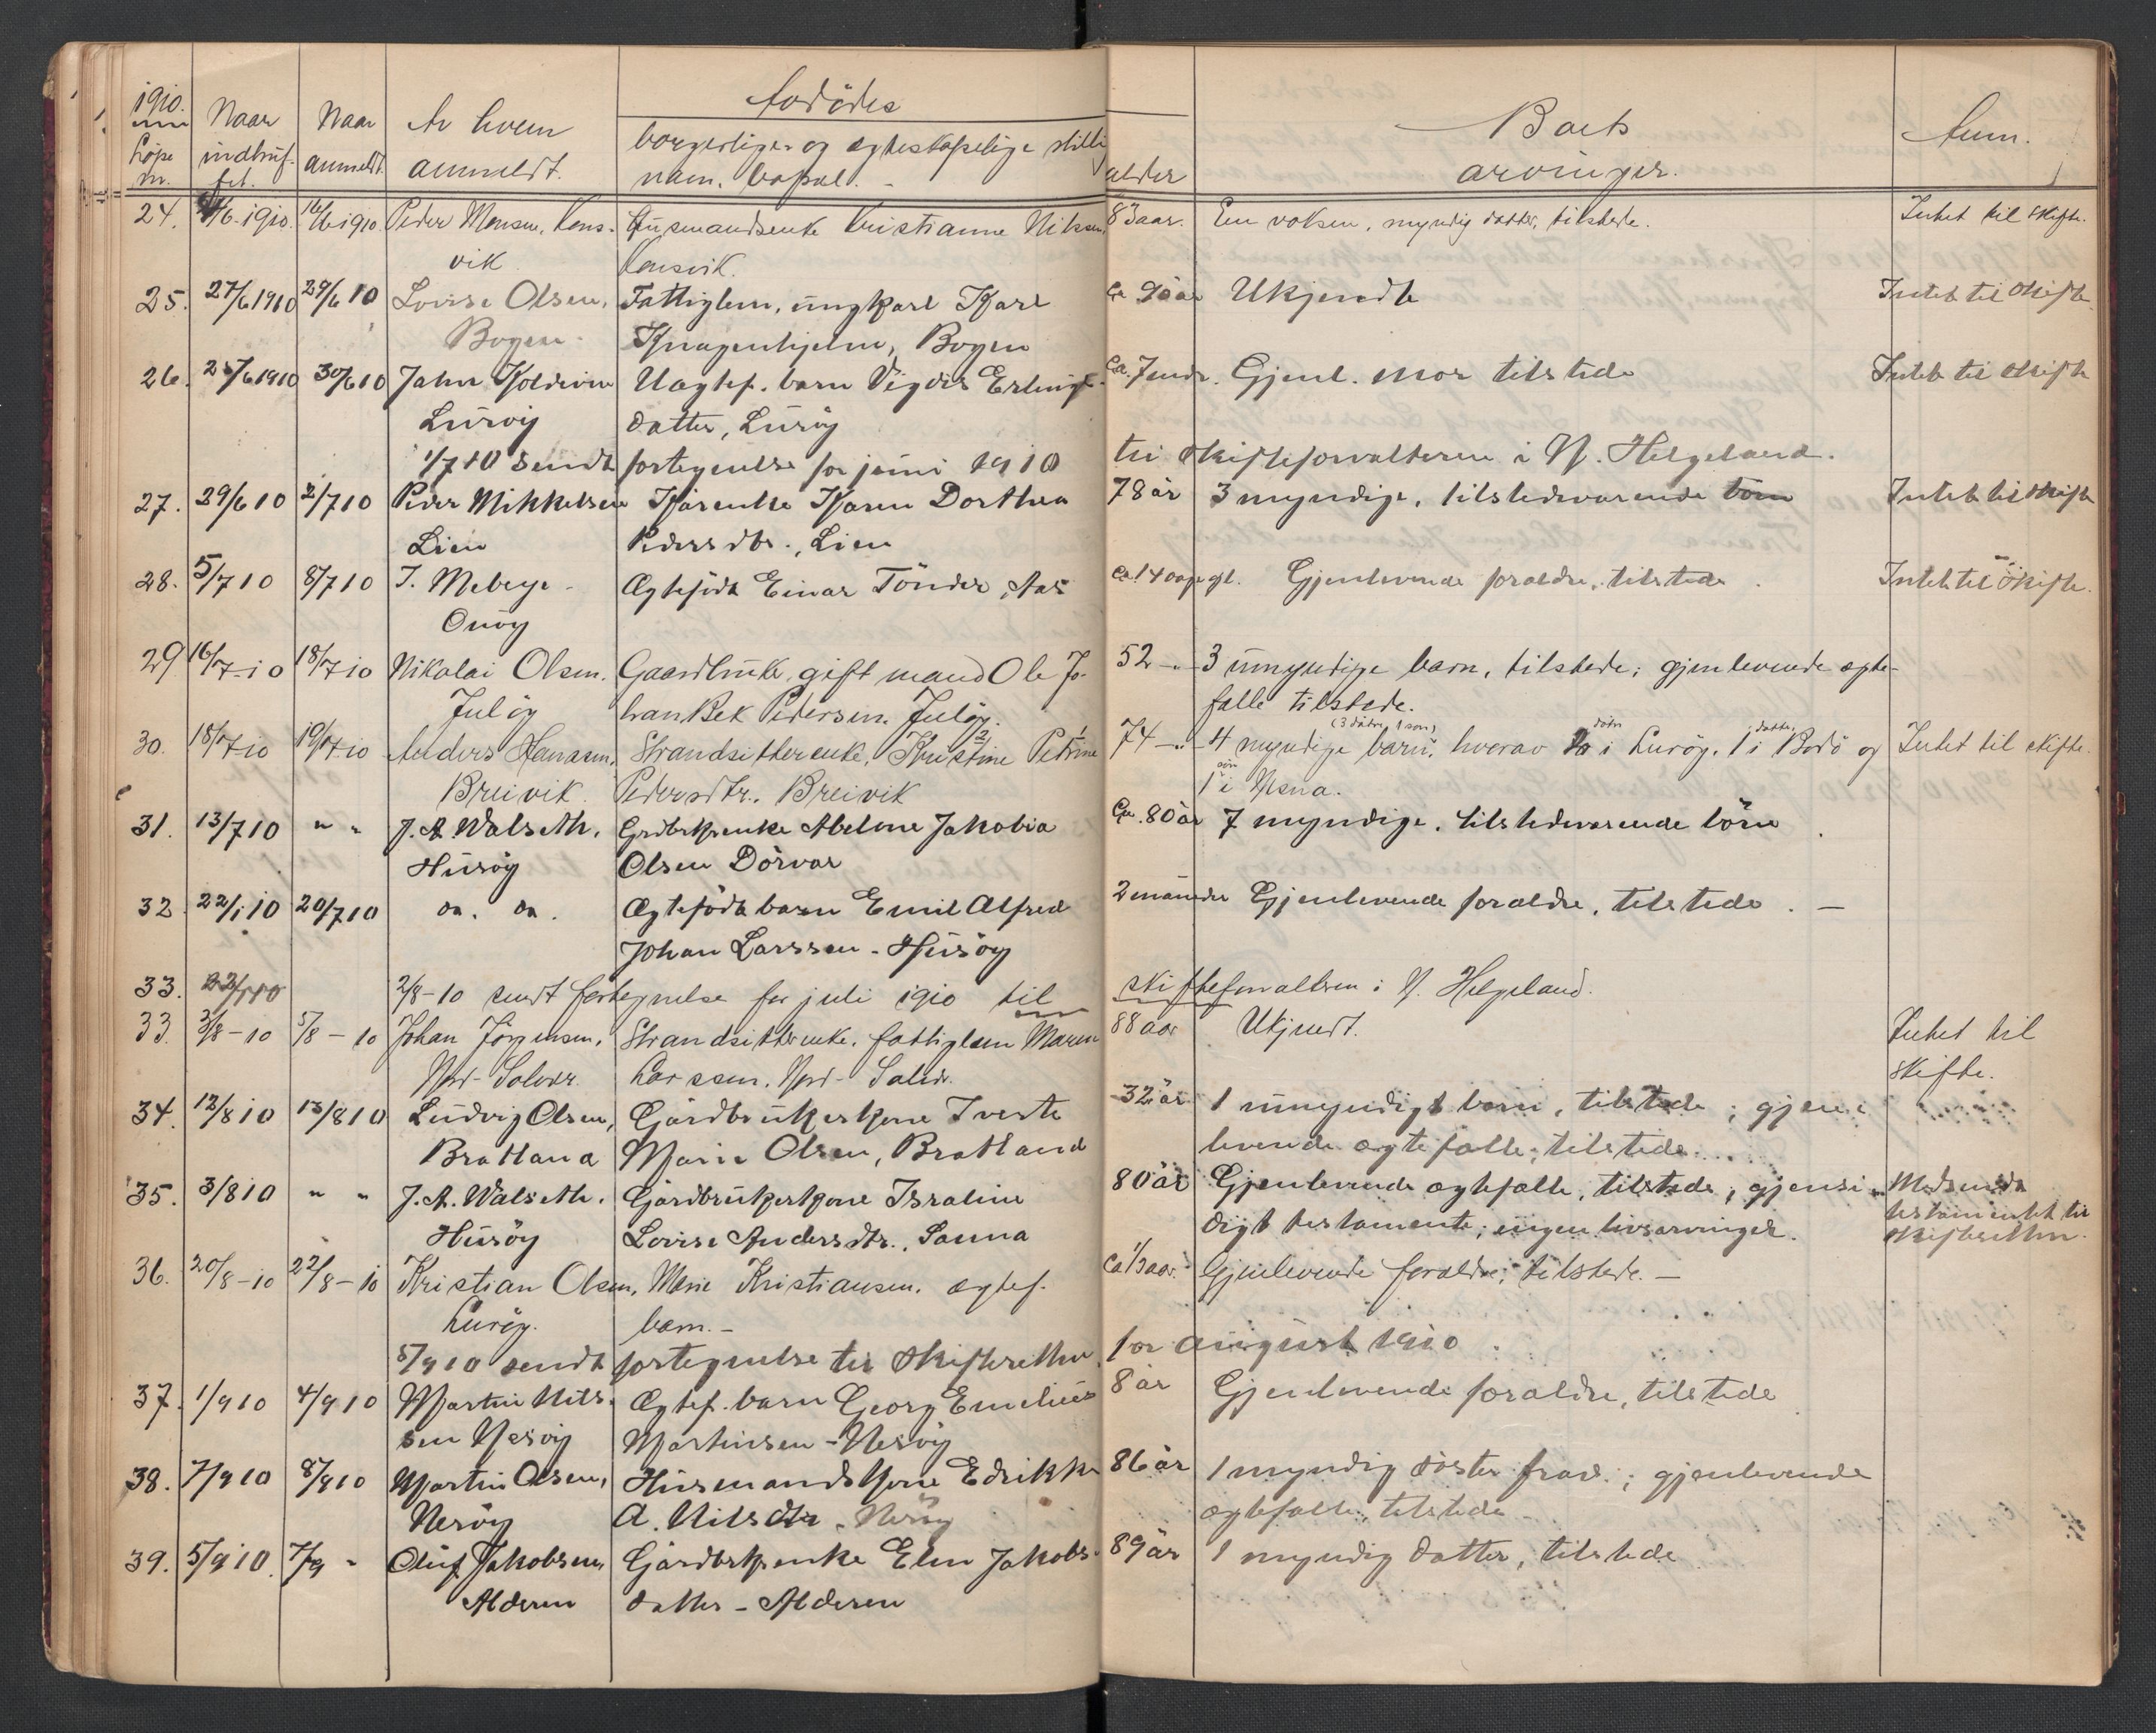 1910.
Løpe nr.
Naar indtruf-
fet.
Naar
anmeldt.
Av hvem
anmeldt.
Avdødes
borgerlige og egteskapelige stilli
navn, bopæl. -
alder
Boets
arvinger.
Anm.
24. /6-1910. 16/6 1910 Peder Monsen, Kons- Husmandsenke Kristianne Nilssen, 83 aar. En voksen, myndig datter, tilstede. Intet til skifte.
vik Konsvik.
25. 27/6 1910 29/6 10 Lovise Olsen, Fattiglem, ungkarl Karl ca 90 år Ukjendt Intet til skifte
Bogen. Knagenhjelm, Bogen
26. 25/6 1910 30/6 10 Jahn Koldevin Uægtef. barn Vigdis Erlings- ca. 7 mdr. Gjenl. mor tilstede Intet til skifte
Lurøy datter, Lurøy
1/7 10 sendt fortegnelse for juni 1910 til skifteforvalteren i N. Helgeland.
27. 29/6 10 2/7 10 Peder Mikkelsen Kårenke Karen Dorthea 78 år 3 myndige, tilstedeværende børn Intet til skifte
Lien Pedersdtr., Lien
28. 5/7 10 8/7 10 J. Meberge - Ægtefødt Einar Tønder, Aas ca. 14 dage gl. Gjenlevende forældre, tilstede. Intet til skifte.
Onøy
29 16/7-10 18/7 10 Nikolai Olsen. Gaardbruker, gift mand Ole Jo- 52 -"- 3 umyndige barn, tilstede; gjenlevende egte-
Juløy han Bek Pedersen. Juløy. fælle tilstede.
(3 døtre, 1 søn) døtre datter
2 1
30. 18/7-10 19/7-10 Anders Hanssen, Strandsitterenke, Kristine Petrine 74 -"- 4 myndige barn, hvorav 2 i Lurøy, 1 i Bodø og Intet til skifte.
Breivik. Pedersdtr. Breivik søn 1 i Nesna.
31. 13/7 10 " " J. A. Walseth, Grdbrkrenke Abelone Jakobia Ca. 80 år 7 myndige, tilstedeværende børn.
Husøy Olsen Dørvær
32. 22/1 10 20/7 10 do. do. Ægtefødt barn Emil Alfred 2 måneder Gjenlevende forældre, tilstede. -
Johan Larssen - Husøy
33. 22/1 10 2/8-10 sendt fortegnelse for juli 1910 til skifteforvaltren i N. Helgeland.
33. 3/8-10 5/8-10 Johan Jørgensen, Strandsitterenke, fattiglem Maren 88 aar Ukjendt. Intet til
Nord-Solvær. Larssen, Nord-Solvær. skifte.
34. 12/8 10 13/8 10 Ludvig Olsen, Gårdbrukerkone Iverte 32 år 1 umyndigt barn, tilstede; gjen-
Bratland Marie Olsen, Bratland levende ægtefælle, tilstede.
35. 3/8 10 " " J. A. Walseth. Gårdbrukerkone Israline 80 år Gjenlevende ægtefælle, tilstede; gjensi- Medsendt
Husøy Lovise Andersdtr., Sanna digt testamente; ingen livsarvinger. testamentet til
skifteretten.
36. 20/8-10 22/8-10 Kristian Olsen, Marie Kristiansen. ægtef. ca 1/3 aar. Gjenlevende forældre; tilstede. -
Lurøy. barn. -
5/9 10 sendt fortegnelse til skifteretten for august 1910.
37. 1/9 10 4/9 10 Martin Nils- Ægtef. barn Georg Emelius 8 år Gjenlevende forældre, tilstede
sen Nesøy Martinsen - Nesøy
38. 7/9 10 8/9 10 Martin Olsen, Husmandskone Edrikke 86 år 1 myndig søster frav.; gjenlevende
Nesøy A. Nilsdtr - Nesøy ægtefælle, tilstede -
39. 5/9 10. 7/9 " Oluf Jakobsen, Gårdbrkrenke Elen Jakobs- 89 år 1 myndig datter, tilstede
Alderen datter - Alderen